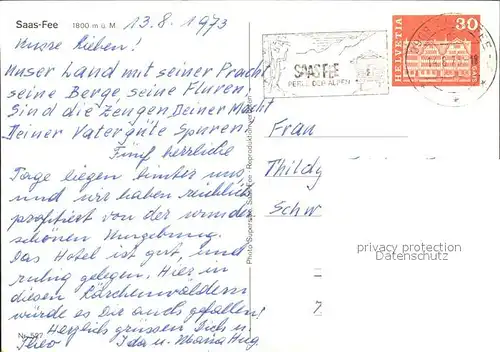 Saas-Fee 1800 m ü. M. 13.8.1973
Meine Lieben!
Unser Land mit seiner Pracht
seine Berge, seine Fluren,
Sind die Zeugen Deiner Macht
Deiner Vatergüte Spuren.
Fünf herrliche
Tage liegen hinter uns
und wir haben reichlich
profitiert von der wunder
schönen Umgebung.
Das Hotel ist gut, und
ruhig gelegen. Hier in
diesen Lärchenwäldern
würde es Dir auch gefallen!
Herzlich grüssen Dich u.
Theo Ida u. Maria Hug
Nr. 507
SAAS FEE
PERLE DER ALPEN
HELVETIA
30
Frau
Thildy
Schw
privacy protection
Datenschutz